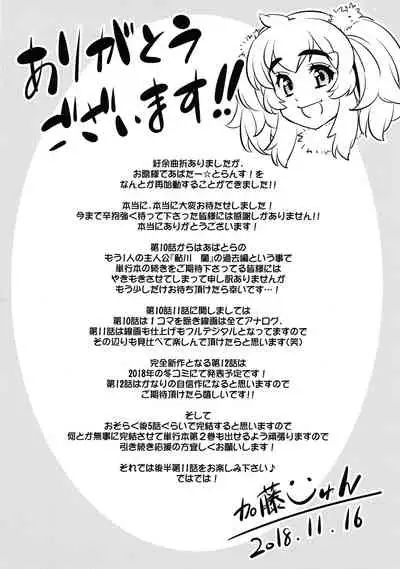 ありがとう
ございます!!
紆余曲折ありましたが、
お陰様であばたー☆とらんす!を
なんとか再始動することができました!!
本当に、本当に大変お待たせしました!
今まで辛抱強く待って下さった皆様には感謝しかありません!!
本当にありがとうございます!
第10話からはあばとらの
もう1人の主人公「鮎川 蘭」の過去編という事で
単行本の続きをご期待下さってる皆様には
やきもきさせてしまって申し訳ありませんが
もう少しだけお待ち頂けたら幸いです…!
第10話11話に関しましては
第10話は1コマを除き線画は全てアナログ、
第11話は線画も仕上げもフルデジタルとなってますので
その辺りも見比べて楽しんで頂けたらと思います(笑)
完全新作となる第12話は
2018年の冬コミにて発表予定です!
第12話はかなりの自信作になると思いますので
ご期待頂けたら嬉しいです!!
そして
おそらく後5話くらいで完結すると思いますので
何とか無事に完結させて単行本第2巻も出せるよう頑張りますので
引き続き応援の方宜しくお願いします!
それでは後半第11話をお楽しみ下さい♪
ではでは!
加藤じゅん
2018.11.16